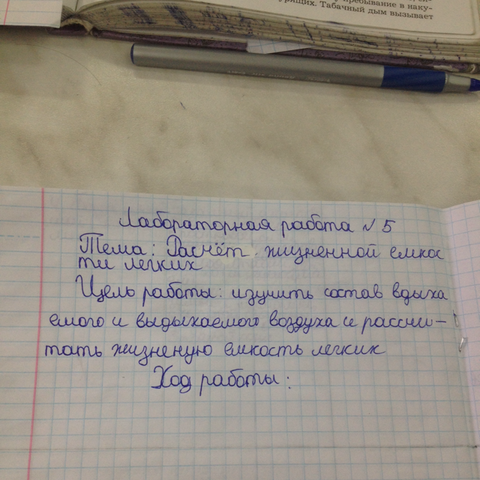 пребывание в наку-
рищих. Табачный дым вызывает
Лабораторная работа № 5
Тема: Расчёт жизненной емкос
ти легких
Цель работы: изучить состав вдыха
емого и выдыхаемого воздуха и рассчи-
тать жизненую емкость легких
Ход работы: